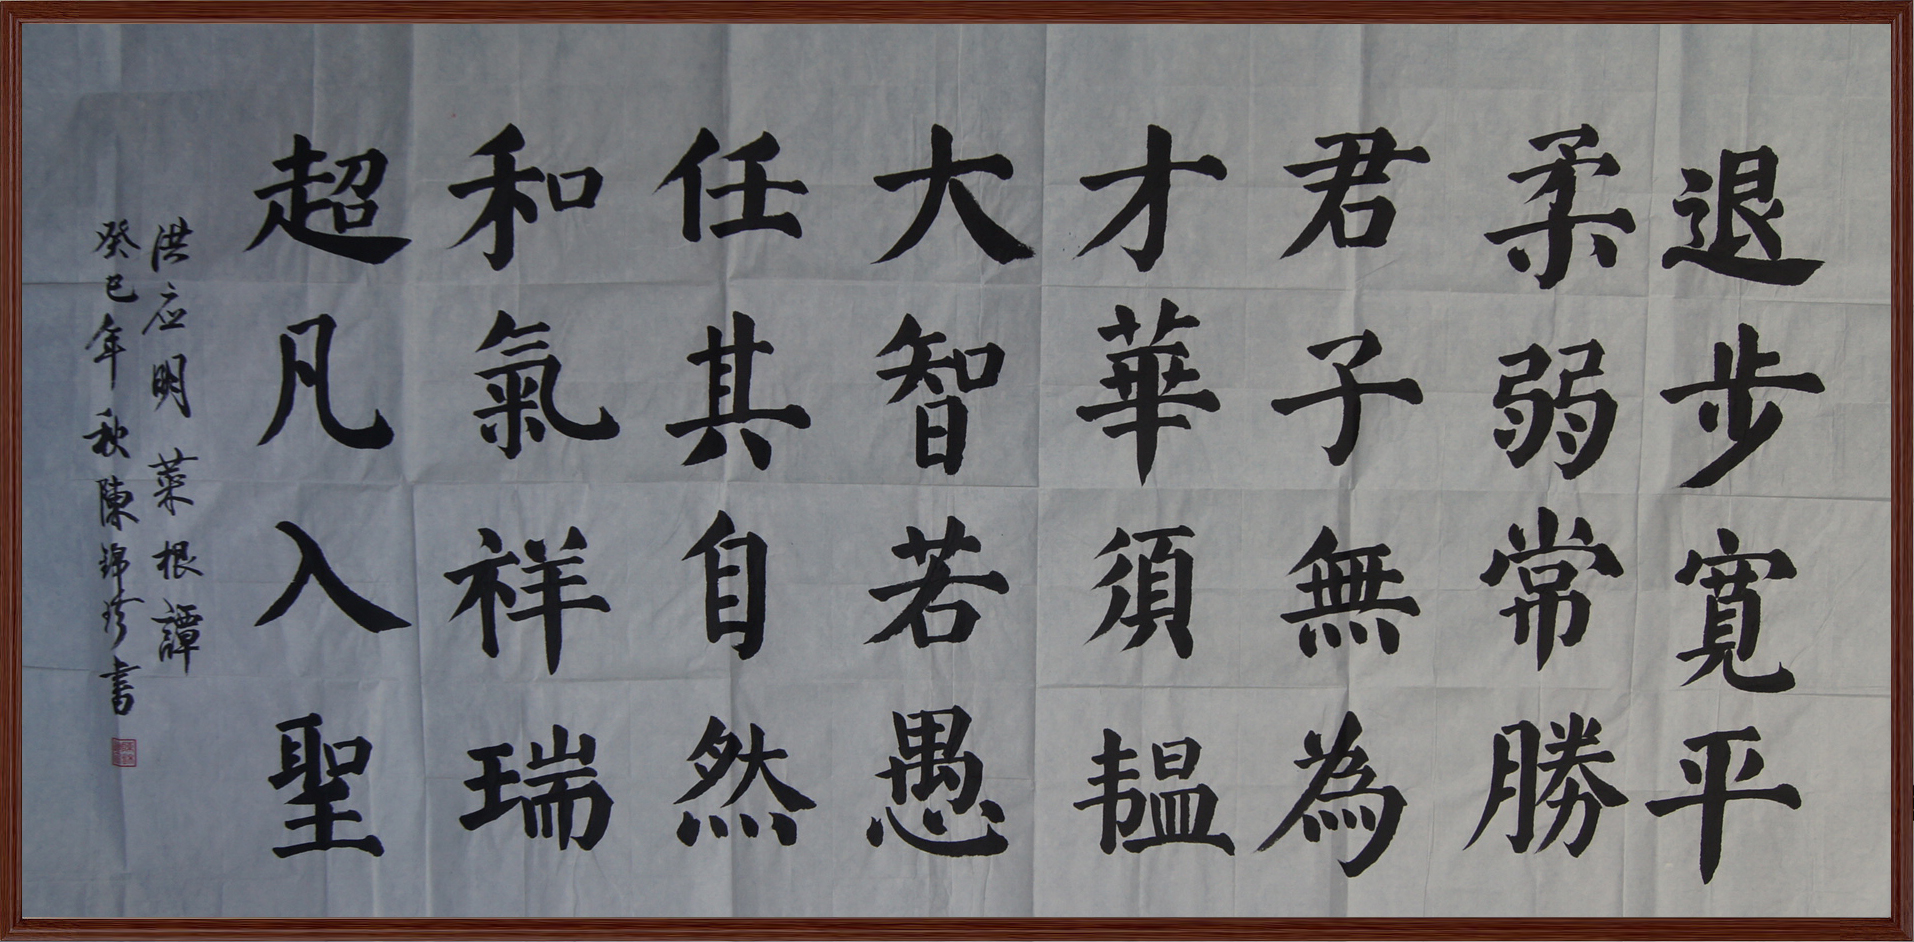 退步寬平
柔弱常勝
君子無為
才華須韞
大智若愚
任其自然
和氣祥瑞
超凡入聖
洪应明菜根譚
癸巳年秋陳錦珍書